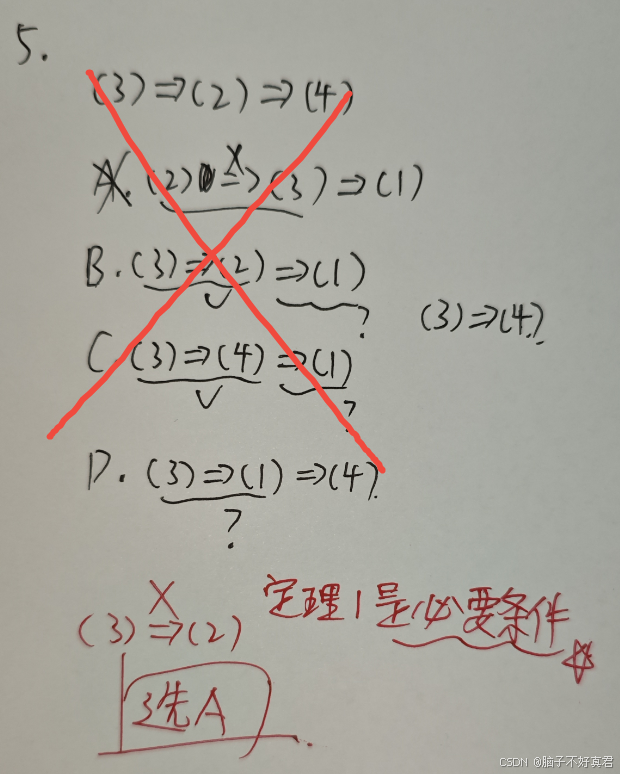 5.
(3)⇒(2)⇒(4)
A. (2)⇒(3)⇒(1)
X
B. (3)⇒(2)⇒(1)
✓ ?
(3)⇒(4)?
C. (3)⇒(4)⇒(1)
✓ ?
D. (3)⇒(1)⇒(4)?
?
X
(3)⇒(2)
定理1是必要条件☆
选A
CSDN @脑子不好真君